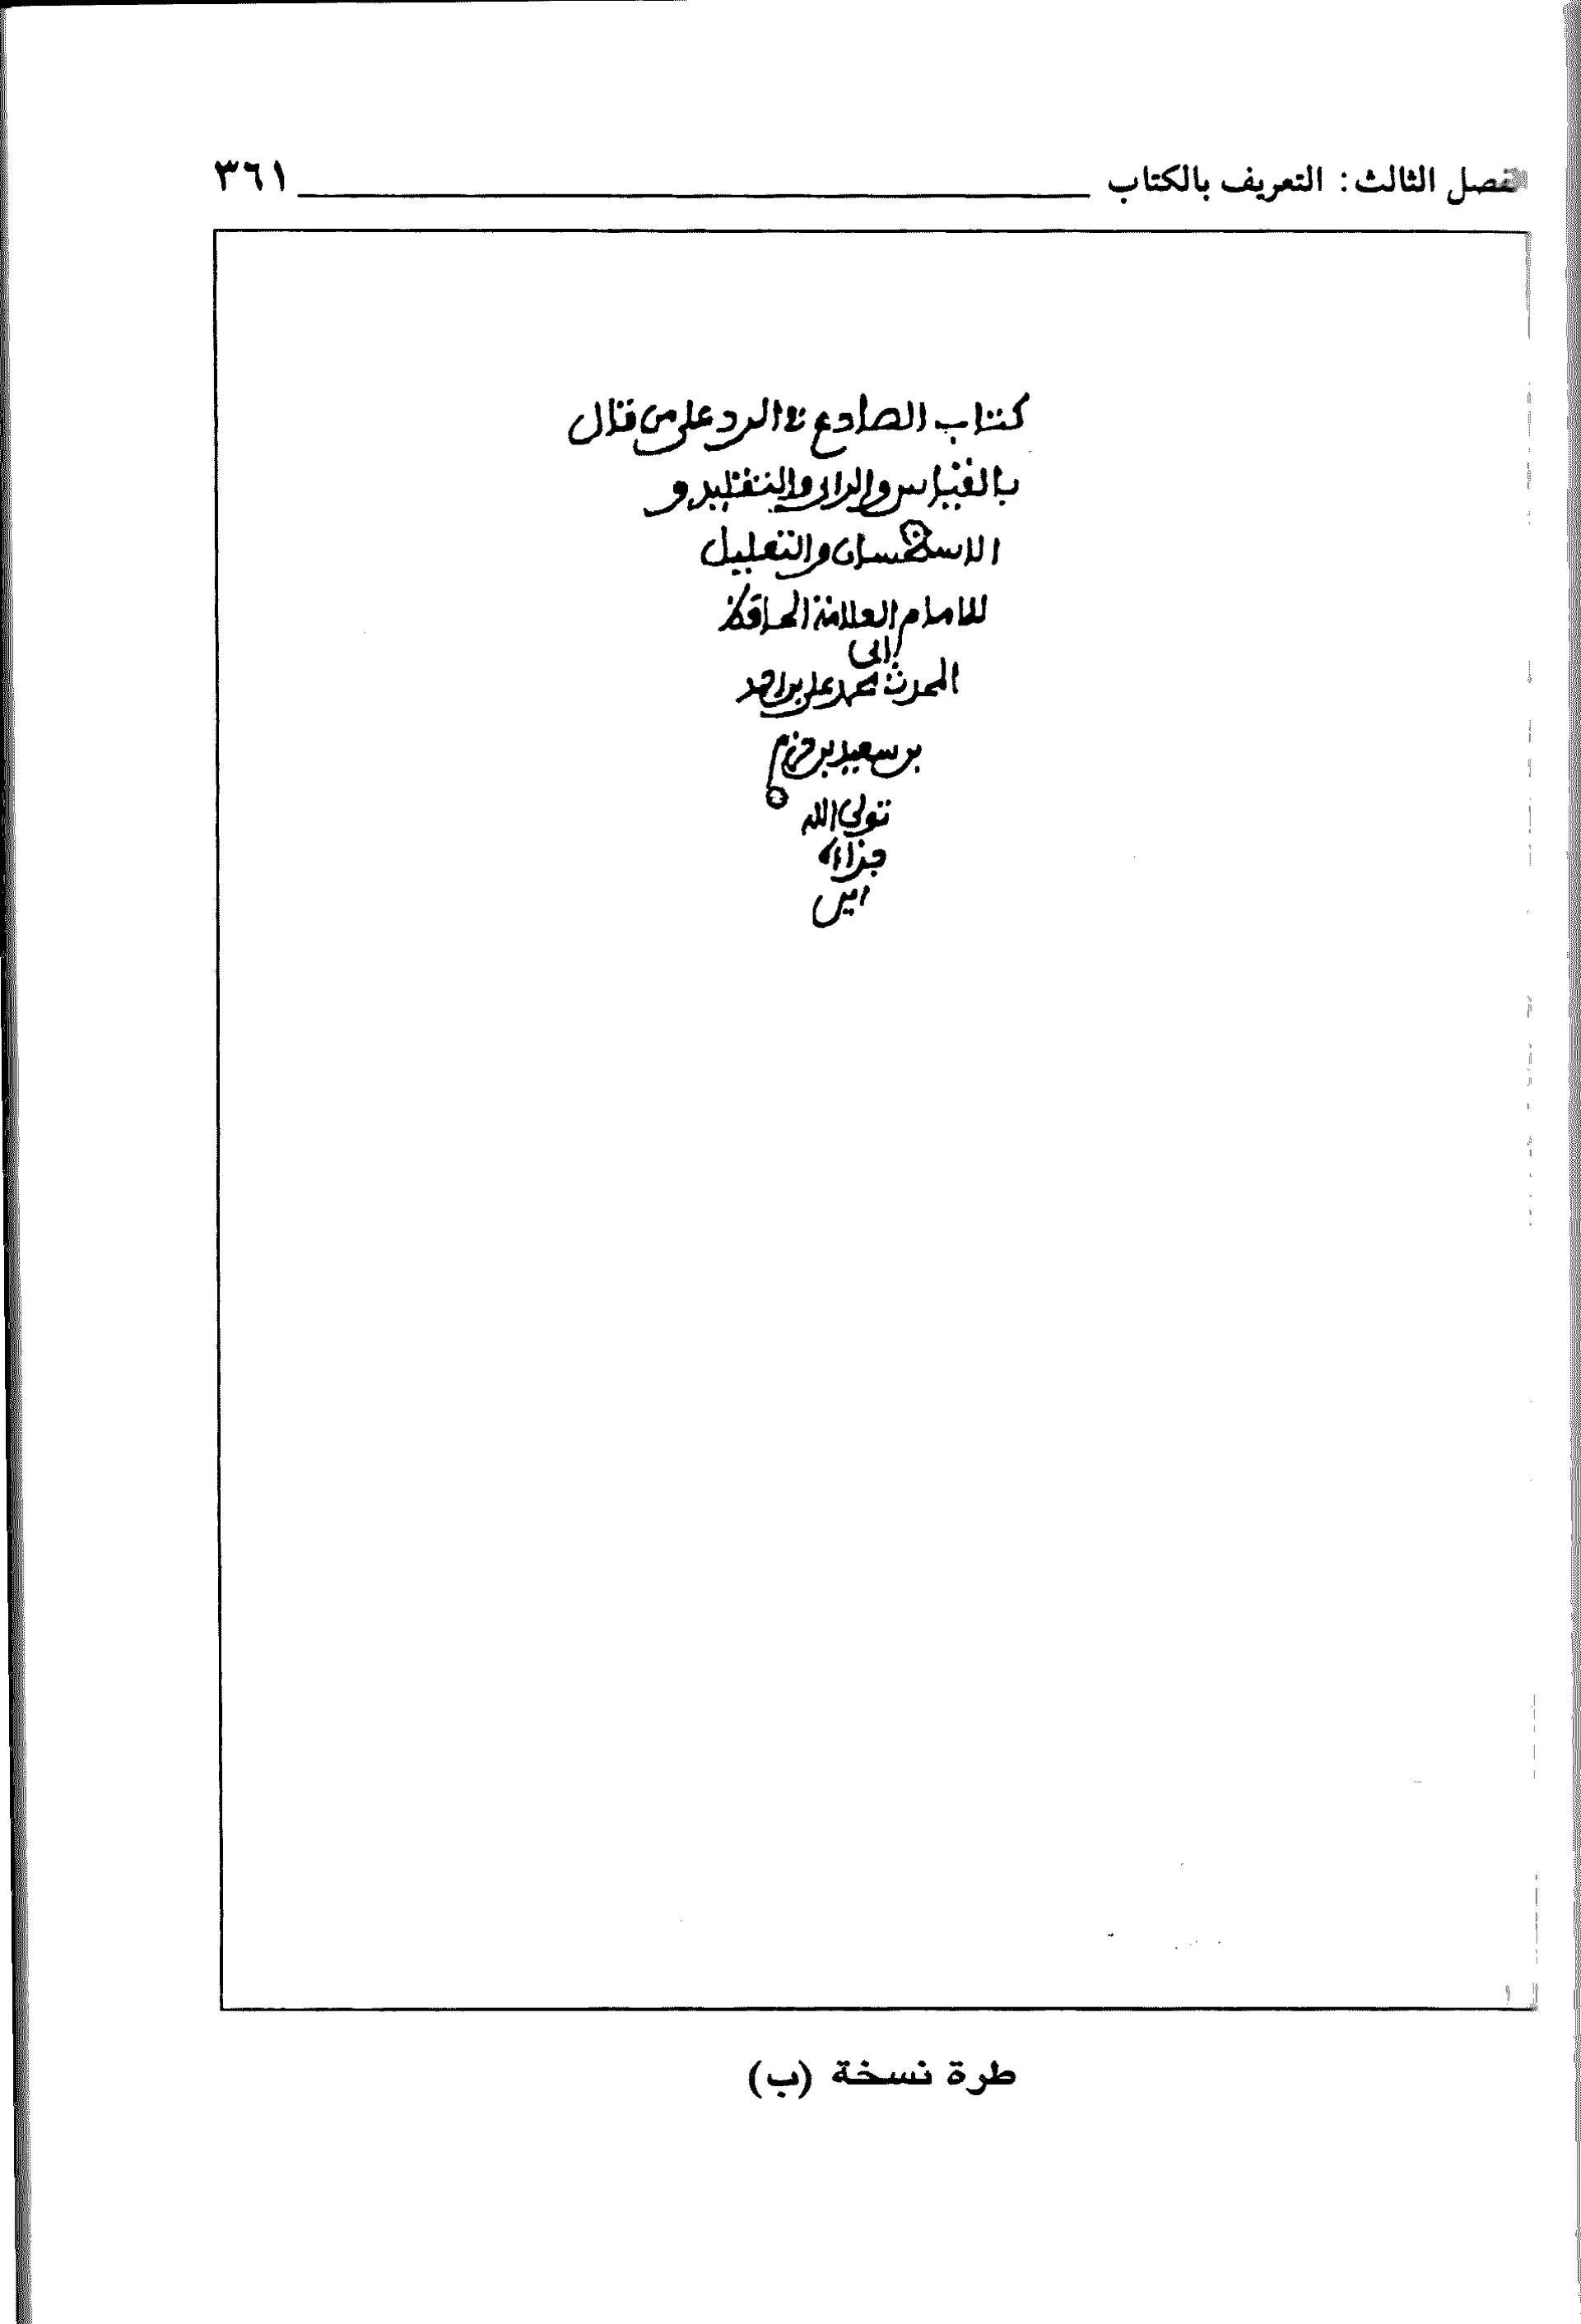 الفصل الثالث: التعريف بالكتاب ٣٦١
كتاب الصادع في الرد على من قال
بالقياس والراي والتقليد و
الاستحسان والتعليل
للامام العلامة الحافظ
المحدث ابي محمد علي بن احمد
بن سعيد بن حزم
تولى الله
جزاءه
امين
طرة نسخة (ب)